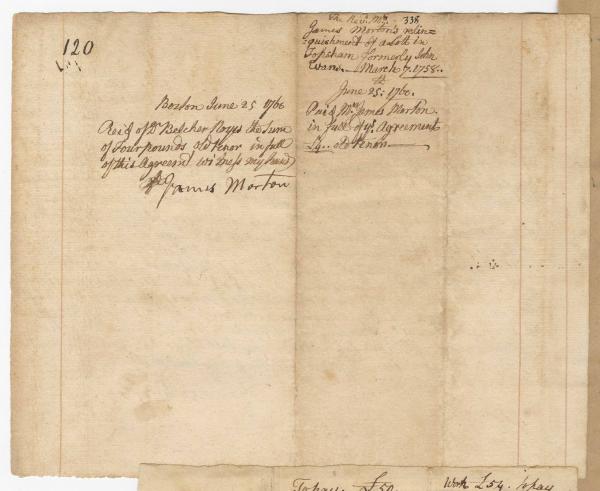 120
Boston June 25 1760
Rec'd of Dr Belcher Noyes the Sum
of Four pounds old Tenor in full
of this Agreem't witness my hand
James Morton
The Rev'd Mr. 338
James Morton's relin=
quishment of a Lott in
Topsham formerly John
Evans. March 7. 1758.
June 25: 1760.
Paid Mr James Morton
in full of ye Agreement
£4.. old Tenor.
To pay. £50.
Work £54. to pay